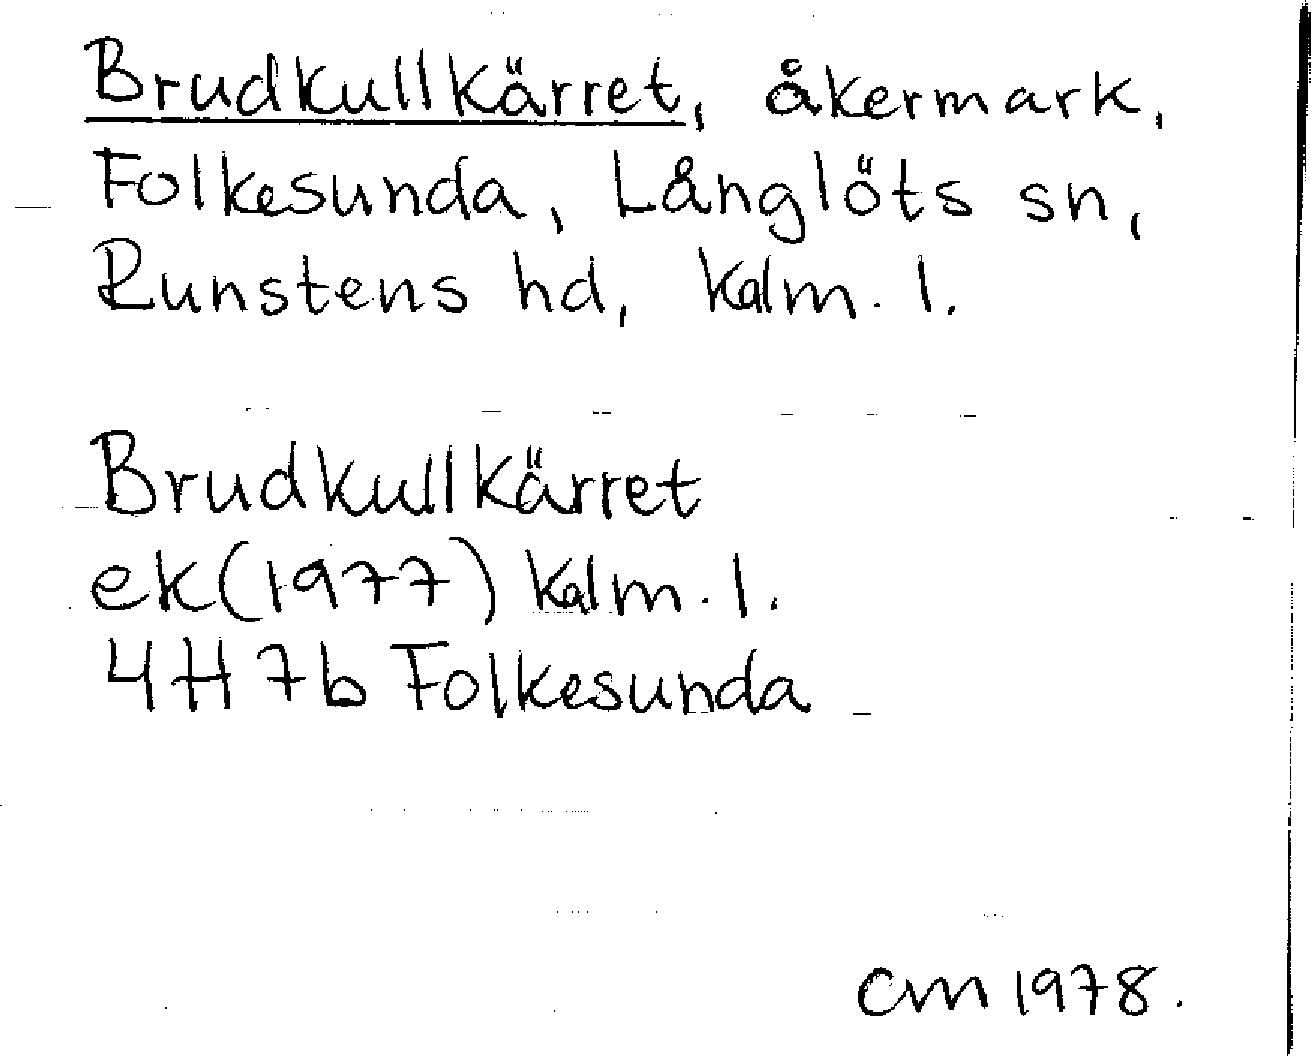 Brudkullkärret, åkermark,
Folkesunda, Långlöts sn,
Runstens hd, Kalm. l.
Brudkullkärret
ek(1977) Kalm. l.
4H7b Folkesunda
CM 1978.